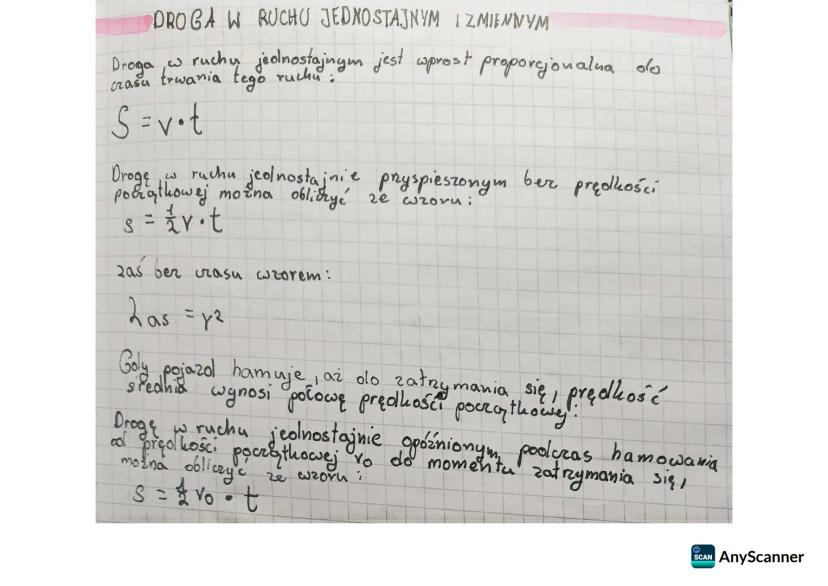 DROGA W RUCHU JEDNOSTAJNYM I ZMIENNYM
Droga w ruchu jednostajnym jest wprost proporcjonalna do
czasu trwania tego ruchu:
S = v • t
Drogę w ruchu jednostajnie przyspieszonym bez prędkości
początkowej można obliczyć ze wzoru:
s = 1/2 v • t
zaś bez czasu wzorem:
2as = v²
Gdy pojazd hamuje, aż do zatrzymania się, prędkość
średnia wynosi połowę prędkości początkowej:
Drogę w ruchu jednostajnie opóźnionym, podczas hamowania
od prędkości początkowej v0 do momentu zatrzymania się,
można obliczyć ze wzoru:
s = 1/2 v0 • t
SCAN AnyScanner